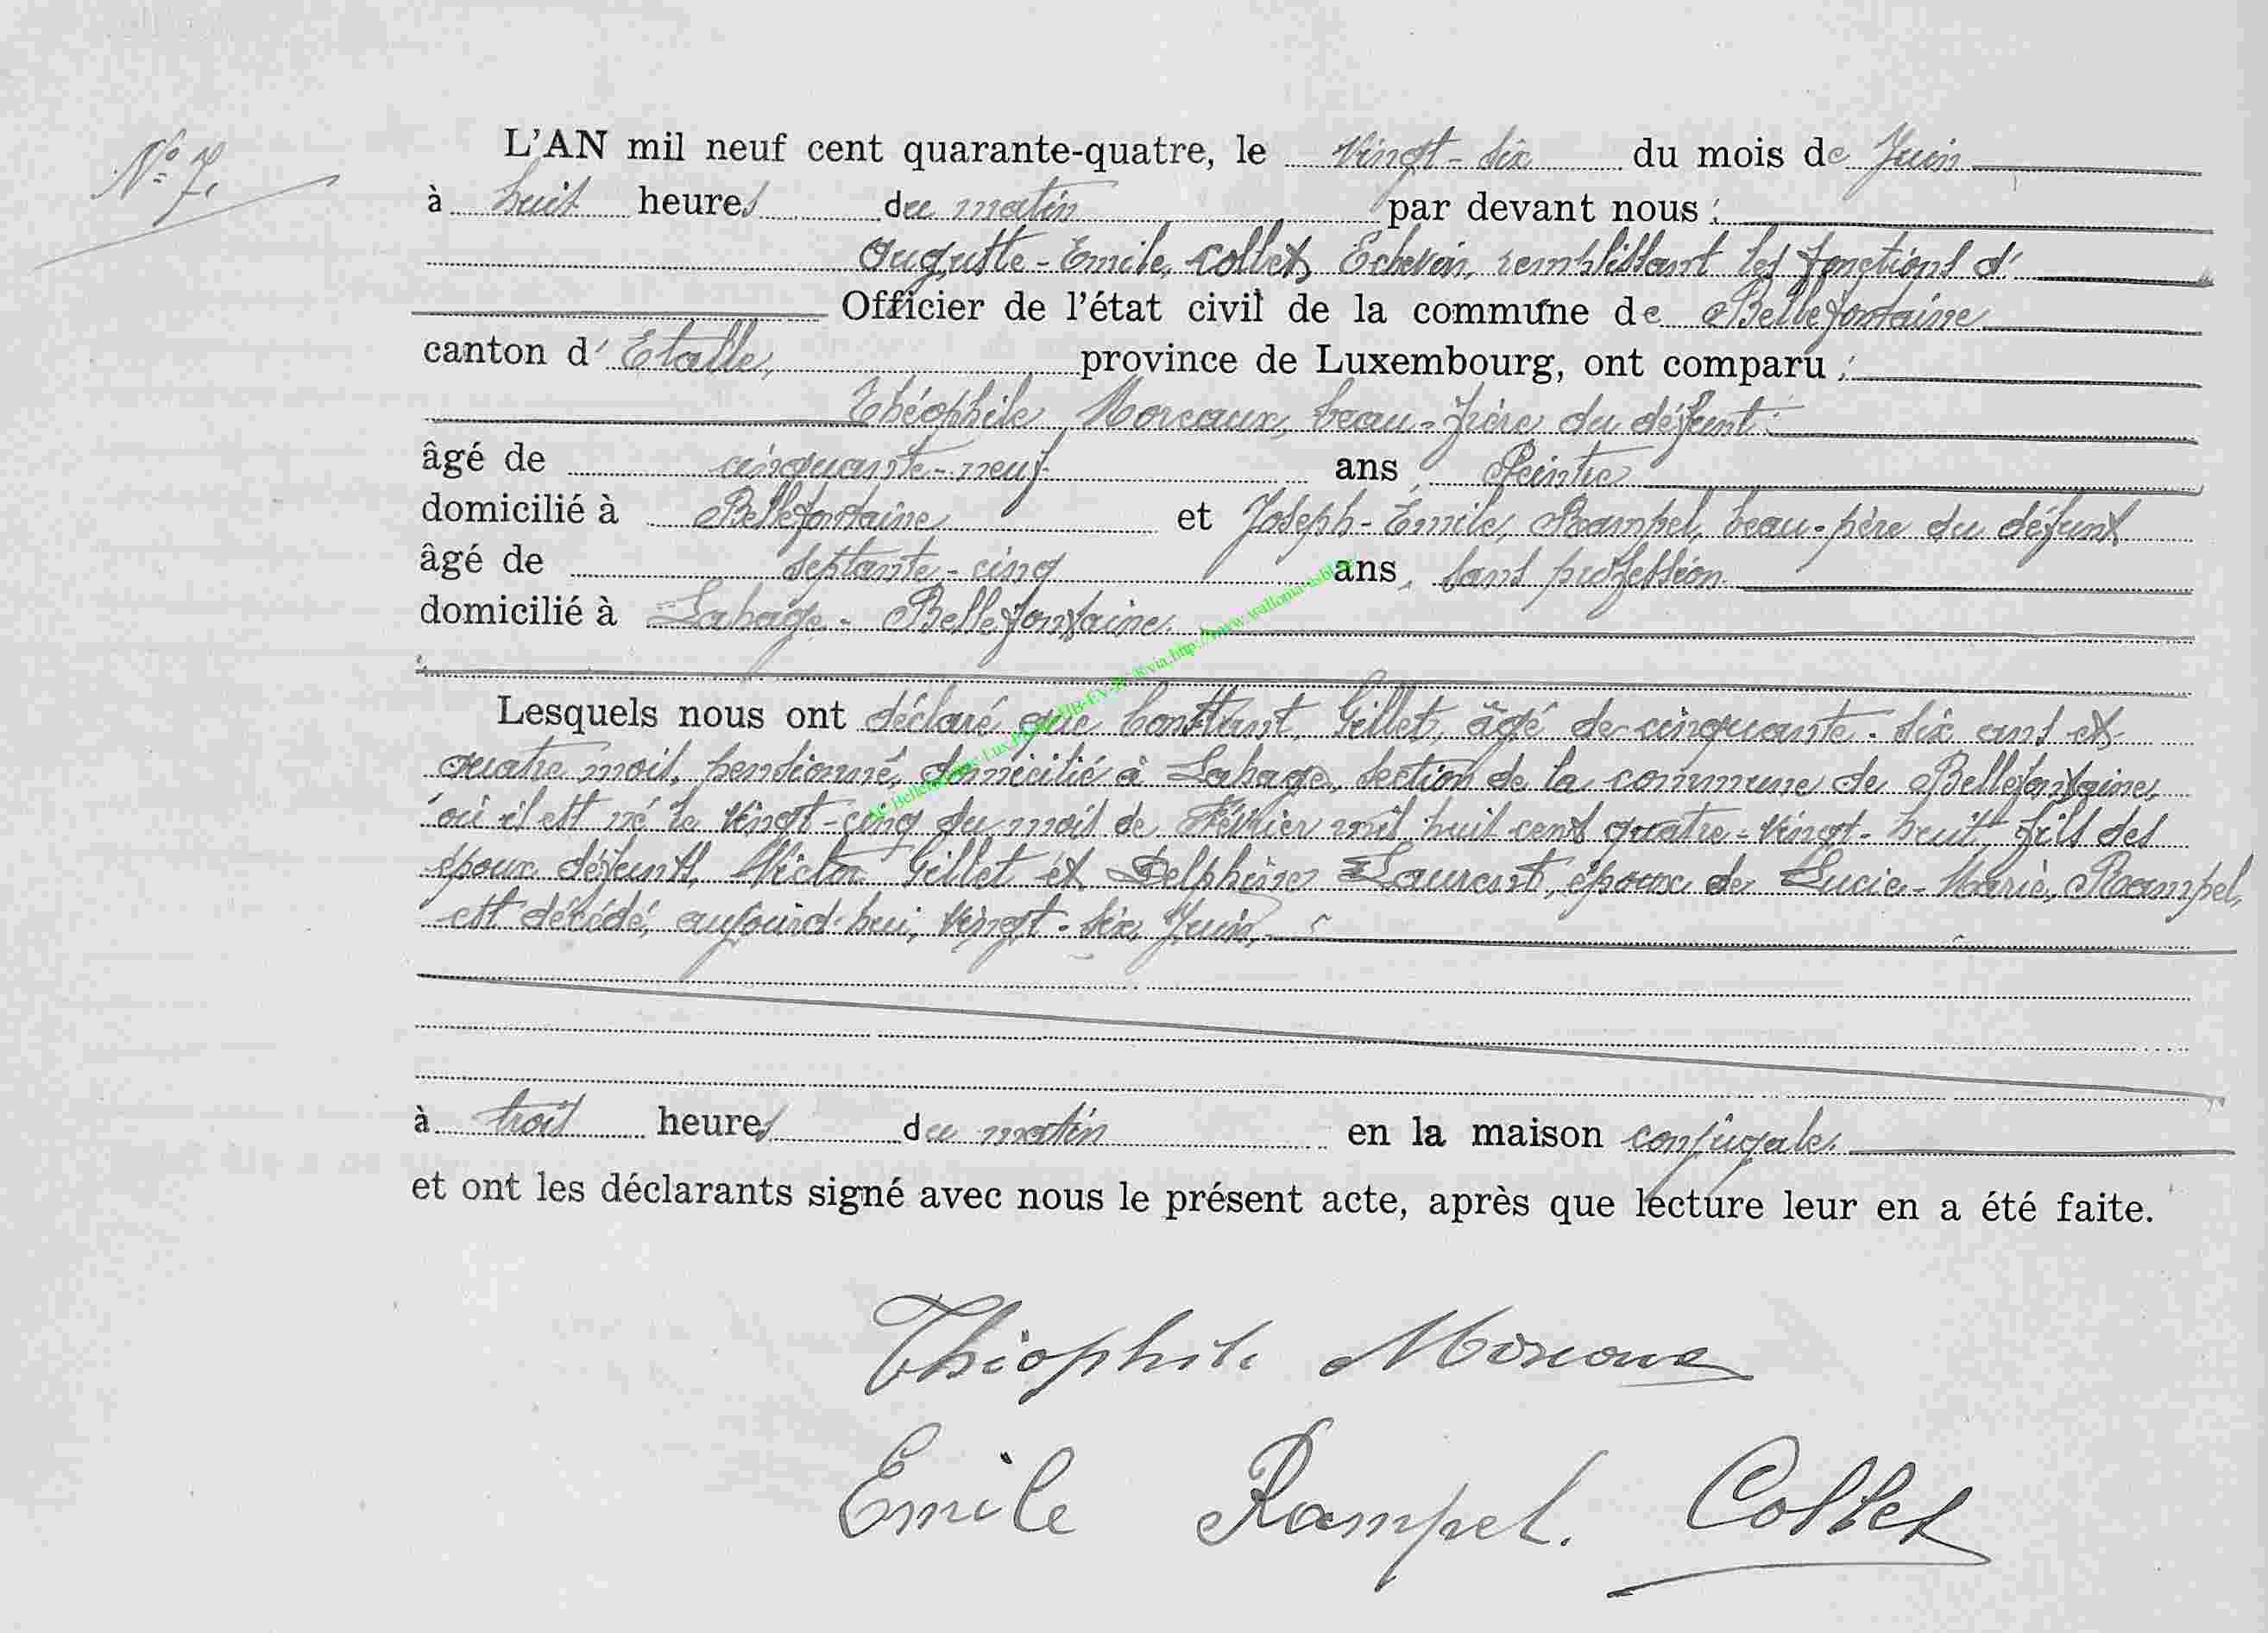 N° 7.
L'AN mil neuf cent quarante-quatre, le vingt-six du mois de Juin
à huit heures du matin par devant nous :
Auguste-Emile, Collet, Echevin, remplissant les fonctions d'
Officier de l'état civil de la commune de Bellefontaine
canton d'Etalle, province de Luxembourg, ont comparu :
Théophile Moreaux, beau-frère du défunt
âgé de cinquante-neuf ans, Peintre
domicilié à Bellefontaine et Joseph-Emile, Rampel, beau-père du défunt
âgé de septante-cinq ans, sans profession.
domicilié à Lahage-Bellefontaine.
Lesquels nous ont déclaré que Constant, Gillet, âgé de cinquante-six ans et
quatre mois, pensionné, domicilié à Lahage, section de la commune de Bellefontaine,
où il est né le vingt-cinq du mois de Février mil huit cent quatre-vingt-huit, fils des
époux défunts, Victor Gillet et Delphine Laurent, époux de Lucie-Marie, Rampel,
est décédé, aujourd'hui, vingt-six Juin,
à trois heures du matin en la maison conjugale.
et ont les déclarants signé avec nous le présent acte, après que lecture leur en a été faite.
Théophile Moreaux
Emile Rampel. Collet